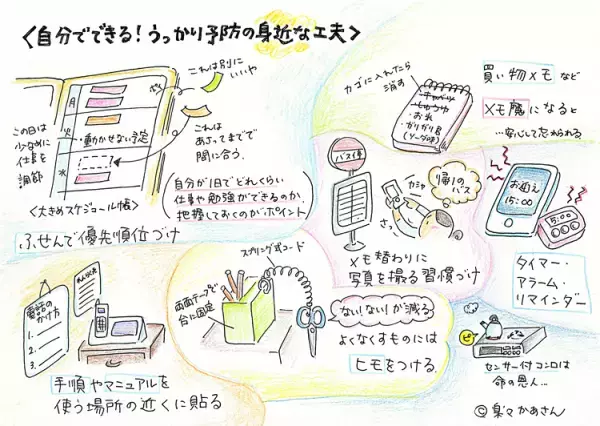 <自分でできる!うっかり予防の身近な工夫>
これは別に
いいや
月
火
・動かせない予定
この日は
少なめに
仕事を
調節
これは
あさってまでで
間に合う。
<大きめスケジュール帳>
自分が1日でどれくらい
仕事や勉強ができるのか、
把握しておくのがポイント
ふせんで優先順位づけ
カゴに入れたら
消す
キャベツ
しょうゆ
・お米
・ガリガリ君
(ソーダ味)
買い物メモなど
メモ魔になると
…安心して忘れられる
バス停
カシャ
さっ
帰りの
バス
メモ替わりに
写真を撮る習慣づけ
お迎え
15:00
5:00
タイマー・
アラーム・
リマインダー
電話の
かけ方
1.
2.
3.
手順やマニュアルを
使う場所の近くに貼る
スプリング式コード
両面テープで
台に固定
ない!ない!が減る
よくなくすものには
ヒモをつける
ピー
センサー付コンロは
命の恩人…
©楽々かあさん